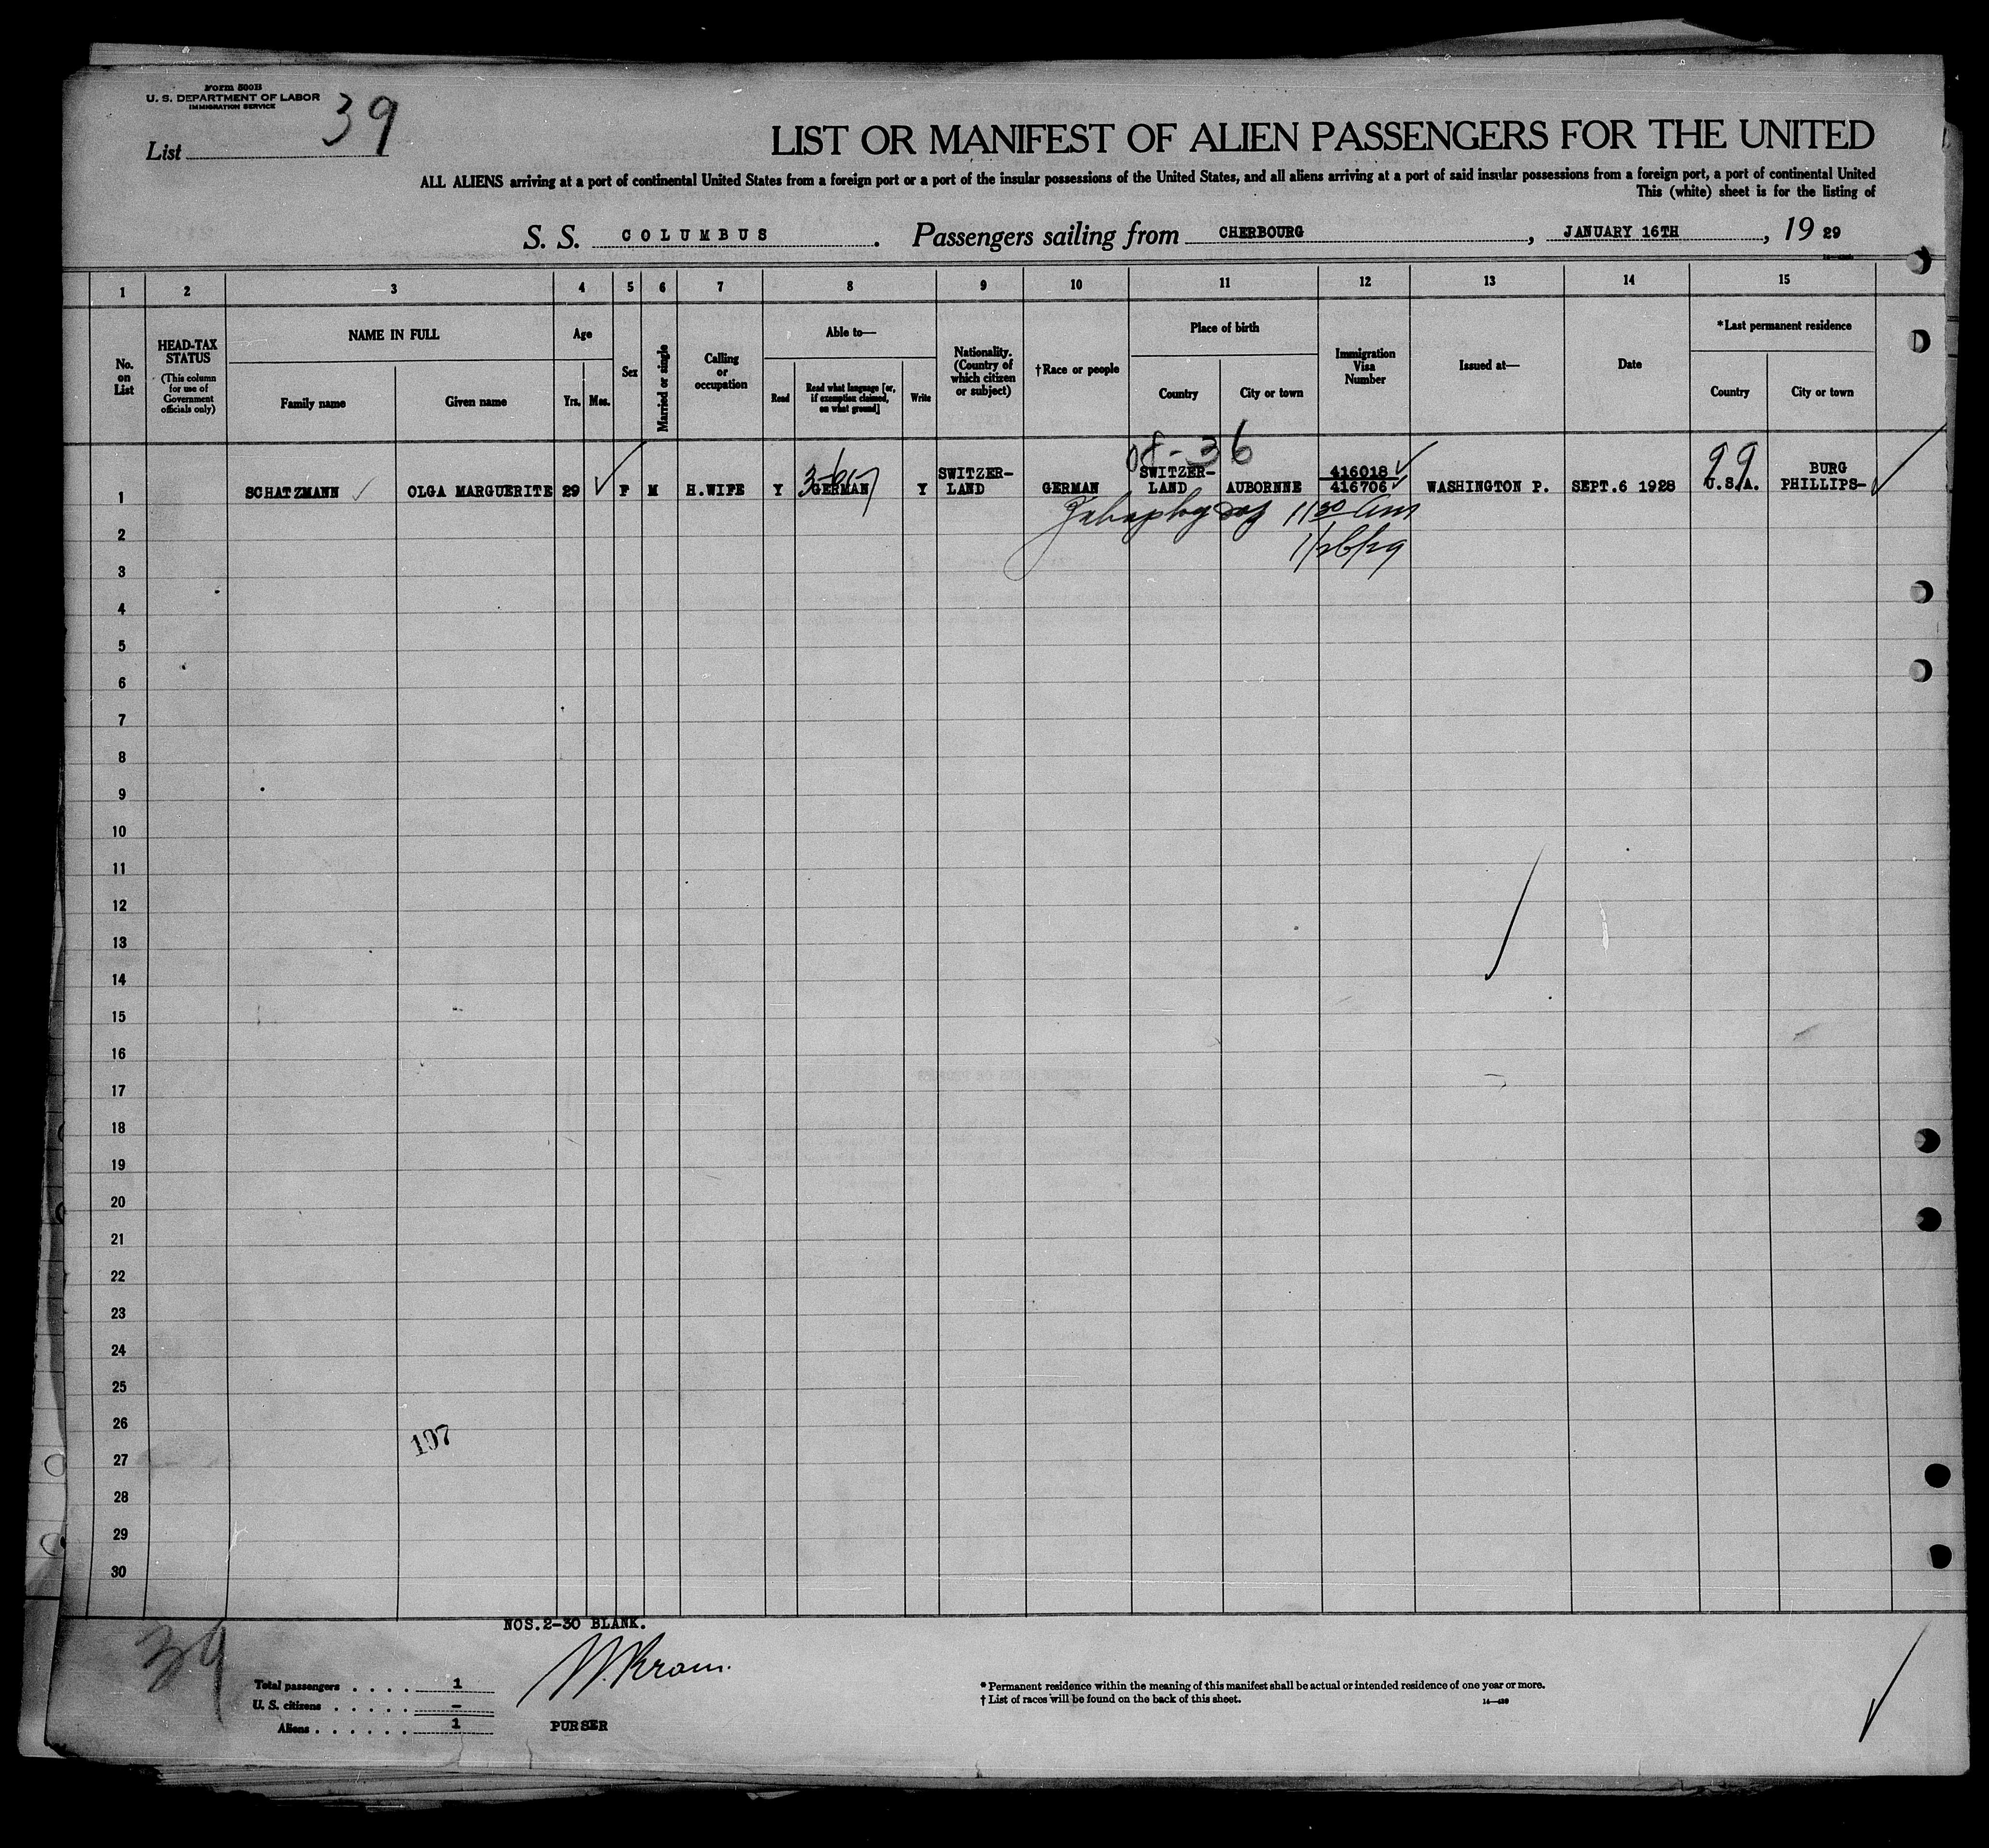 Form 500B
U. S. DEPARTMENT OF LABOR
IMMIGRATION SERVICE
List 39
LIST OR MANIFEST OF ALIEN PASSENGERS FOR THE UNITED
ALL ALIENS arriving at a port of continental United States from a foreign port or a port of the insular possessions of the United States, and all aliens arriving at a port of said insular possessions from a foreign port, a port of continental United
This (white) sheet is for the listing of
S. S. COLUMBUS . Passengers sailing from CHERBOURG , JANUARY 16TH , 19 29
1 2 3 4 5 6 7 8 9 10 11 12 13 14 15
No. on List
HEAD-TAX STATUS
(This column for use of Government officials only)
NAME IN FULL
Family name
Given name
Age
Yrs.
Mos.
Sex
Married or single
Calling or occupation
Able to—
Read
Read what language [or, if exemption claimed, on what ground]
Write
Nationality. (Country of which citizen or subject)
†Race or people
Place of birth
Country
City or town
Immigration Visa Number
Issued at—
Date
*Last permanent residence
Country
City or town
08-36
99
1 SCHATZMANN OLGA MARGUERITE 29 F M H.WIFE Y GERMAN Y SWITZER-LAND GERMAN SWITZER-LAND AUBORNNE 416018 416706 WASHINGTON P. SEPT.6 1928 U.S.A. BURG PHILLIPS-
11 30 am
1/26/29
2
3
4
5
6
7
8
9
10
11
12
13
14
15
16
17
18
19
20
21
22
23
24
25
26
107
27
28
29
30
NOS.2-30 BLANK.
39
Total passengers . . . . 1
U. S. citizens . . . . . –
Aliens . . . . . . 1
PURSER
* Permanent residence within the meaning of this manifest shall be actual or intended residence of one year or more.
† List of races will be found on the back of this sheet.